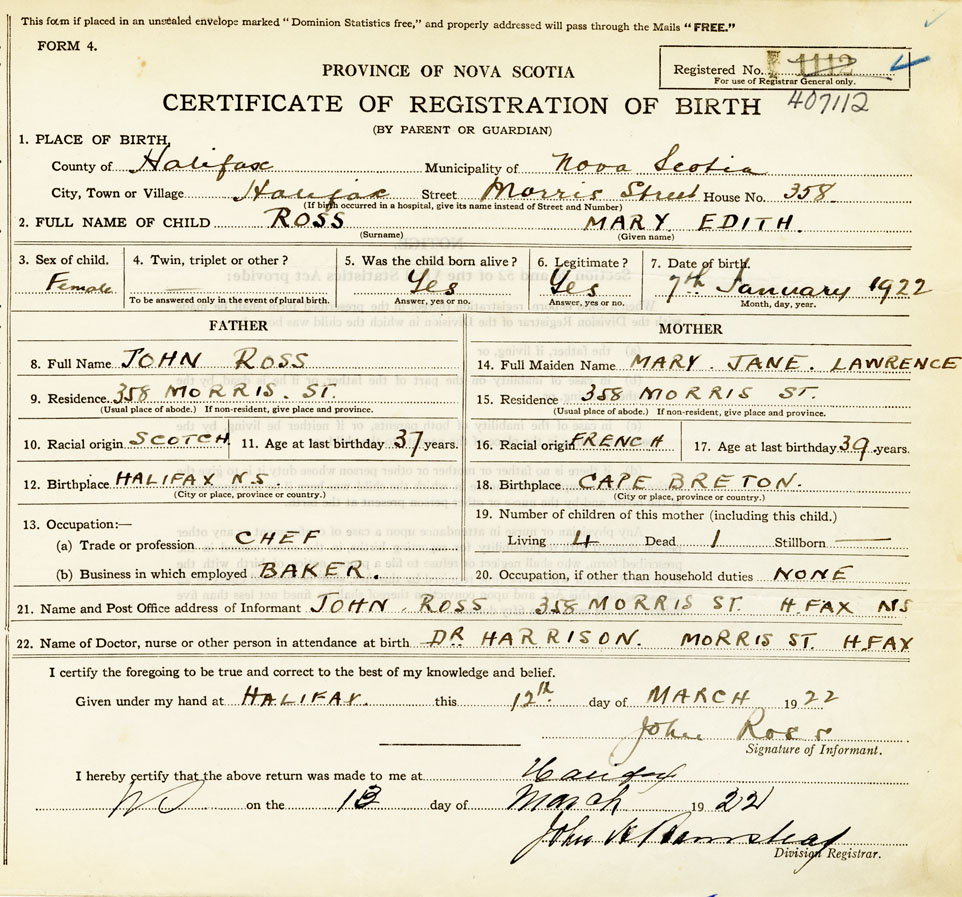 This form if placed in an unsealed envelope marked "Dominion Statistics free," and properly addressed will pass through the Mails "FREE."
FORM 4.
PROVINCE OF NOVA SCOTIA
Registered No. 1112 4
For use of Registrar General only.
CERTIFICATE OF REGISTRATION OF BIRTH 407112
(BY PARENT OR GUARDIAN)
1. PLACE OF BIRTH,
County of Halifax Municipality of Nova Scotia
City, Town or Village Halifax Street Morris Street House No. 358
(If birth occurred in a hospital, give its name instead of Street and Number)
2. FULL NAME OF CHILD ROSS MARY EDITH.
(Surname) (Given name)
3. Sex of child. 4. Twin, triplet or other? 5. Was the child born alive? 6. Legitimate? 7. Date of birth.
Female — Yes Yes 7th January 1922
To be answered only in the event of plural birth. Answer, yes or no. Answer, yes or no. Month, day, year.
FATHER MOTHER
8. Full Name JOHN ROSS 14. Full Maiden Name MARY. JANE. LAWRENCE
9. Residence. 358 MORRIS. ST. 15. Residence 358 MORRIS ST.
(Usual place of abode.) If non-resident, give place and province. (Usual place of abode.) If non-resident, give place and province.
10. Racial origin SCOTCH 11. Age at last birthday 37 years. 16. Racial origin FRENCH 17. Age at last birthday 39 years.
12. Birthplace HALIFAX N.S. 18. Birthplace CAPE BRETON.
(City or place, province or country.) (City or place, province or country.)
13. Occupation:— 19. Number of children of this mother (including this child.)
(a) Trade or profession CHEF Living 4 Dead 1 Stillborn —
(b) Business in which employed BAKER. 20. Occupation, if other than household duties NONE
21. Name and Post Office address of Informant JOHN ROSS 358 MORRIS ST. H.FAX NS
22. Name of Doctor, nurse or other person in attendance at birth DR HARRISON. MORRIS ST. H.FAX
I certify the foregoing to be true and correct to the best of my knowledge and belief.
Given under my hand at HALIFAX. this 12th day of MARCH 1922
John Ross
Signature of Informant.
I hereby certify that the above return was made to me at Halifax
on the 13 day of March 1922
John
Division Registrar.